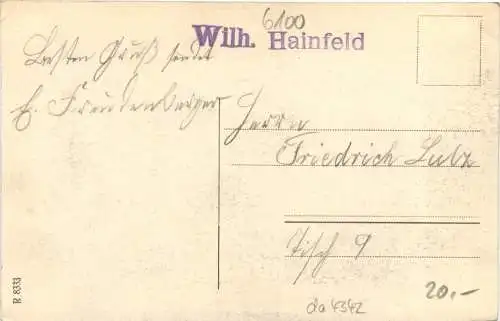 6100
Wilh. Hainfeld
Besten Gruß sendet
E. Freudenberger
Herrn
Friedrich Lutz
Tisch 9
R 8333
da 4342
20.-